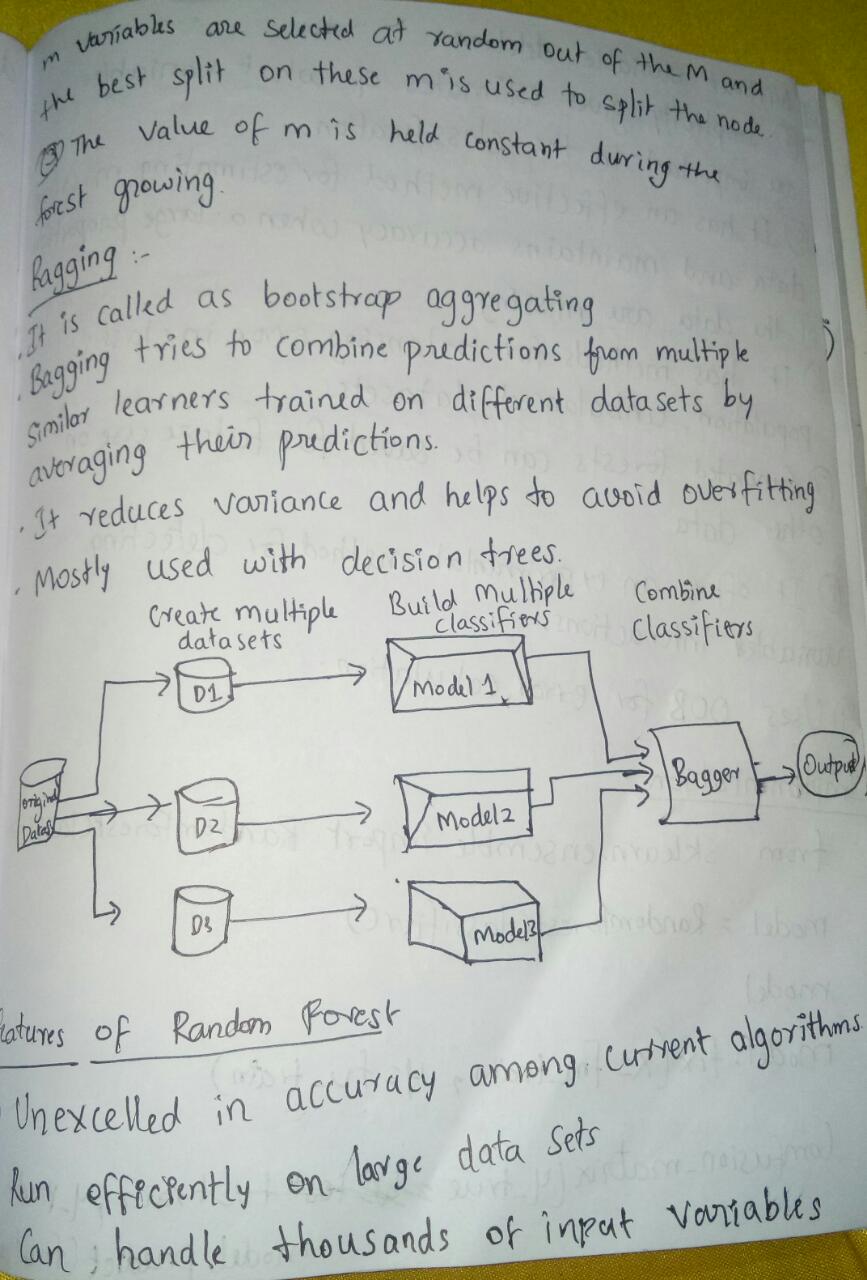 m variables are selected at random out of the M and
the best split on these m is used to split the node.
③ The value of m is held constant during the
forest growing.
Bagging :-
. It is called as bootstrap aggregating
. Bagging tries to combine predictions from multiple
similar learners trained on different datasets by
averaging their predictions.
. It reduces variance and helps to avoid overfitting
. Mostly used with decision trees.
Create multiple
datasets
Build multiple
classifiers
Combine
Classifiers
D1
Model 1
Original
Datas
D2
Model2
Bagger
Output
D3
Model3
eatures of Random Forest
Unexcelled in accuracy among current algorithms
Run efficiently on large data sets
Can handle thousands of input variables